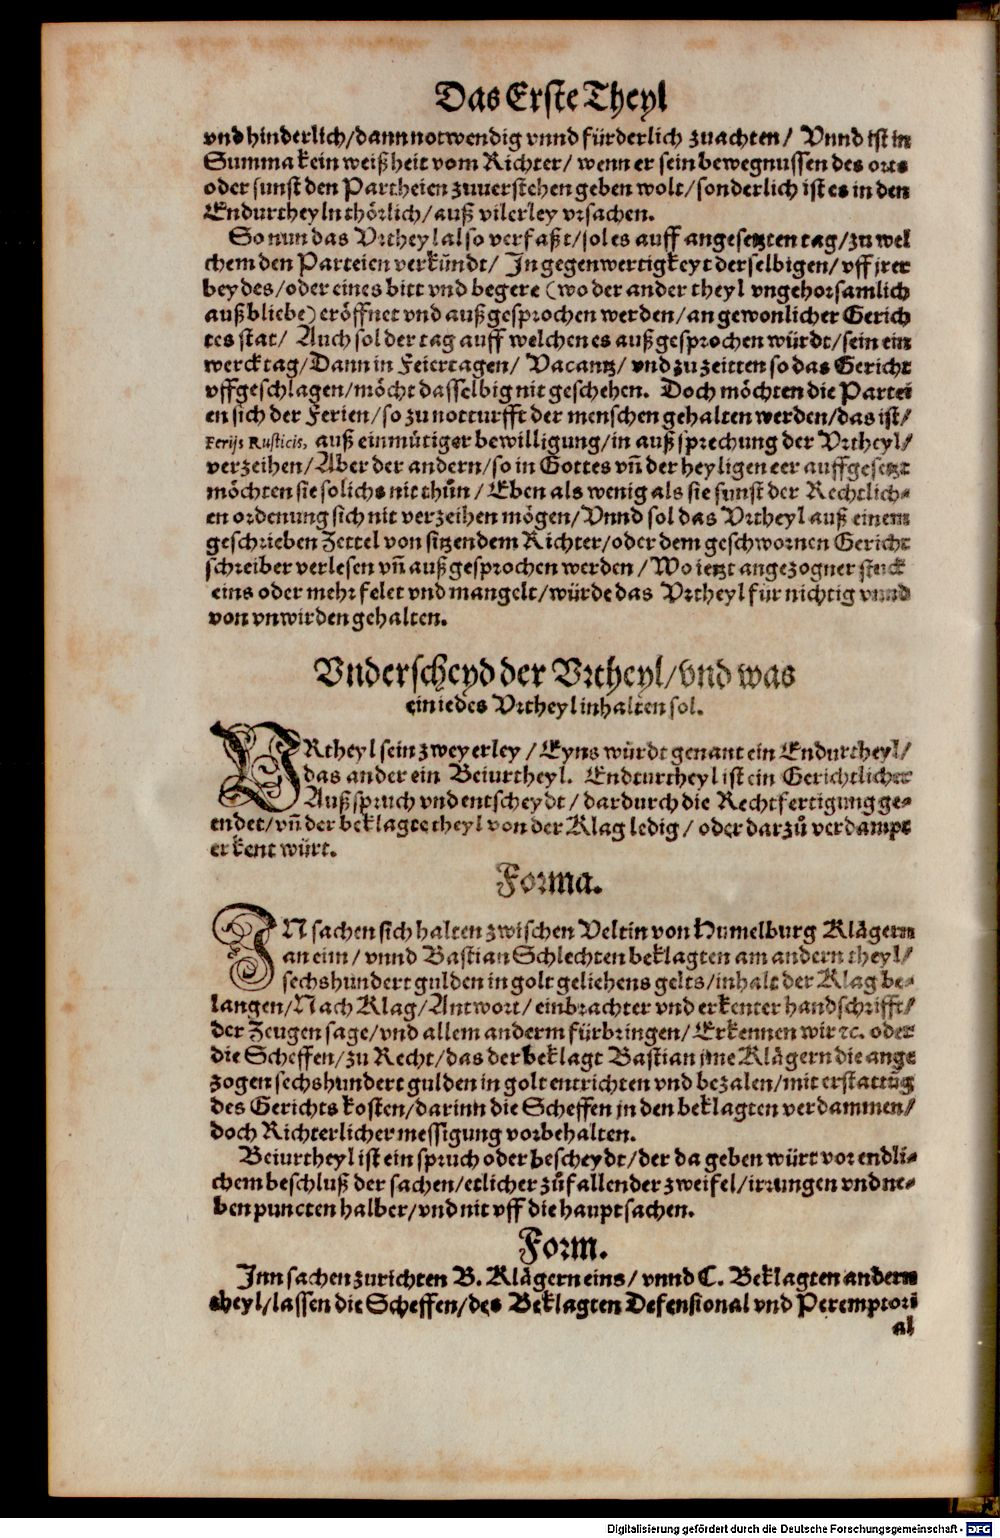 Das Erste Theyl
vnd hinderlich/dann notwendig vnnd fürderlich zuachten/ Vnnd ist in
Summa kein weißheit vom Richter/ wenn er sein bewegnussen des orts
oder sunst den Partheien zuuerstehen geben wolt/sonderlich ist es in den
Endurtheyln thörlich/auß vilerley vrsachen.
So nun das Vrtheyl also verfaßt/sol es auff angesetzten tag/zu wel
chem den Parteien verkündt/ In gegenwertigkeyt derselbigen/vff jrer
beydes/oder eines bitt vnd begere (wo der ander theyl vngehorsamlich
außbliebe) eröffnet vnd außgesprochen werden/an gewonlicher Gerich
tes stat/ Auch sol der tag auff welchen es außgesprochen würdt/sein ein
wercktag/Dann in Feiertagen/ Vacantz/ vnd zu zeitten so das Gericht
vffgeschlagen/möcht dasselbig nit geschehen. Doch möchten die Partei
en sich der Ferien/so zu notturfft der menschen gehalten werden/das ist/
Ferijs Rusticis, auß einmütiger bewilligung/in außsprechung der Vrtheyl/
verzeihen/Aber der andern/so in Gottes vñ der heyligen eer auffgesetzt
möchten sie solichs nit thůn/Eben als wenig als sie sunst der Rechtlich-
en ordenung sich nit verzeihen mögen/Vnnd sol das Vrtheyl auß einem
geschrieben Zettel von sitzendem Richter/oder dem geschwornen Gericht
schreiber verlesen vñ außgesprochen werden/Wo ietzt angezogner stuck
eins oder mehr felet vnd mangelt/würde das Vrtheyl für nichtig vnnd
von vnwirden gehalten.
Vnderscheyd der Vrtheyl/vnd was
ein iedes Vrtheyl inhalten sol.
VRtheyl sein zweyerley/Eyns würdt genant ein Endurtheyl/
das ander ein Beiurtheyl. Endturtheyl ist ein Gerichtlicher
Außspruch vnd entscheydt/dardurch die Rechtfertigung ge-
endet/vñ der beklagte theyl von der Klag ledig/ oder darzů verdampt
erkent würt.
Forma.
IN sachen sich halten zwischen Veltin von Humelburg Klägern
an eim/ vnnd Bastian Schlechten beklagten am andern theyl/
sechshundert gulden in golt geliehens gelts/inhalt der Klag be-
langen/Nach Klag/Antwort/einbrachter vnd erkenter handschrifft/
der Zeugen sage/vnd allem anderm fürbringen/Erkennen wir ꝛc. oder
die Scheffen/zu Recht/das der beklagt Bastian jme Klägern die ange
zogen sechshundert gulden in golt entrichten vnd bezalen/mit erstattũg
des Gerichts kosten/darinn die Scheffen jn den beklagten verdammen/
doch Richterlicher messigung vorbehalten.
Beiurtheyl ist ein spruch oder bescheydt/der da geben würt vor endli-
chem beschluß der sachen/etlicher zůfallender zweifel/irrungen vnd ne-
ben puncten halber/vnd nit vff die hauptsachen.
Form.
Inn sachen zurichten B. Klägern eins/ vnnd C. Beklagten andern
theyl/lassen die Scheffen/des Beklagten Defensional vnd Peremptori
al
Digitalisierung gefördert durch die Deutsche Forschungsgemeinschaft - DFG